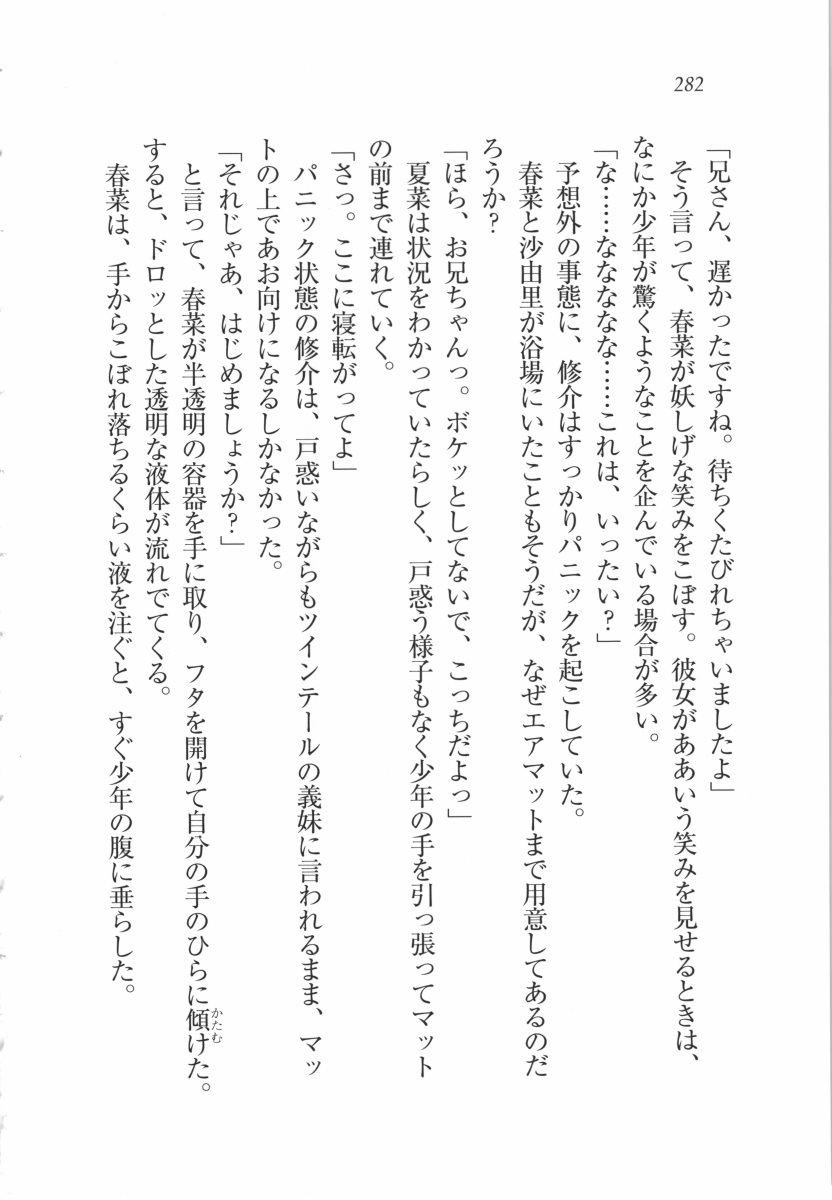 282
「兄さん、遅かったですね。待ちくたびれちゃいましたよ」
そう言って、春菜が妖しげな笑みをこぼす。彼女がああいう笑みを見せるときは、
なにか少年が驚くようなことを企んでいる場合が多い。
「な……ななななな……これは、いったい？」
予想外の事態に、修介はすっかりパニックを起こしていた。
春菜と沙由里が浴場にいたこともそうだが、なぜエアマットまで用意してあるのだ
ろうか？
「ほら、お兄ちゃんっ。ボケッとしてないで、こっちだよっ」
夏菜は状況をわかっていたらしく、戸惑う様子もなく少年の手を引っ張ってマット
の前まで連れていく。
「さっ。ここに寝転がってよ」
パニック状態の修介は、戸惑いながらもツインテールの義妹に言われるまま、マッ
トの上であお向けになるしかなかった。
「それじゃあ、はじめましょうか？」
と言って、春菜が半透明の容器を手に取り、フタを開けて自分の手のひらに傾けた。
すると、ドロッとした透明な液体が流れでてくる。
春菜は、手からこぼれ落ちるくらい液を注ぐと、すぐ少年の腹に垂らした。